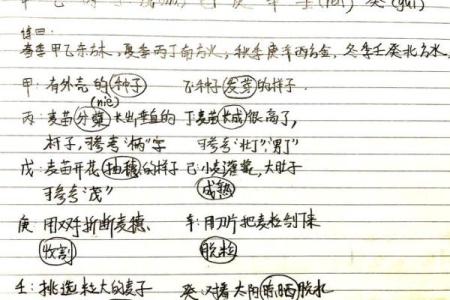 甲乙丙丁戊(wu)己庚辛壬(ren)癸(gui)
春季甲乙东方木,夏季丙丁南方火,秋季庚辛西方金,冬季壬癸北方水
甲:有外壳的种子 乙:种子发芽的样子.
(nie)
丙:麦苗分蘖长出垂直的 丁:麦苗长成很高了,
杆子,可参考"柄"字 可参考"壮丁""男丁"
戊:麦苗开花抽穗的样子 己:小麦灌浆,大肚子
可参考"茂" 成熟
庚:用双手折断麦穗、 辛:用刀片把麦粒刮下来
收割 脱粒
壬:挑选粒大的麦子 癸:对着太阳晾晒脱水